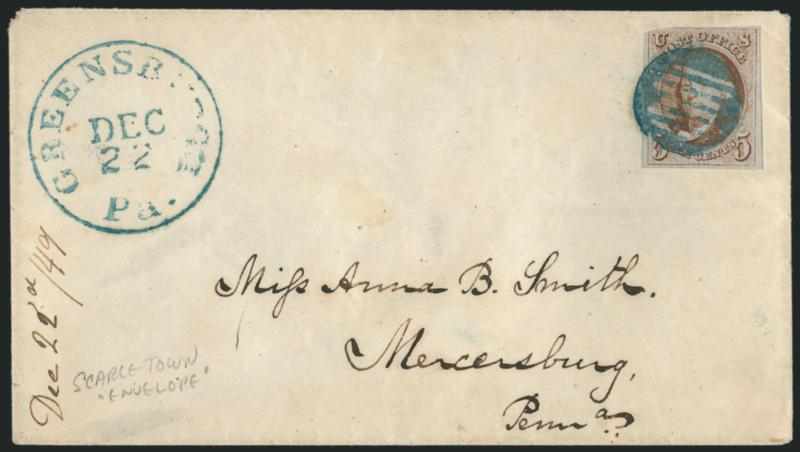 GREENSB
DEC
22
Pa.
U S
POST OFFICE
5 CENTS 5
Miſs Anna B. Smith.
Mercersburg,
Pennᵃ
Dec 22ᵈ /49
SCARCE TOWN
"ENVELOPE"